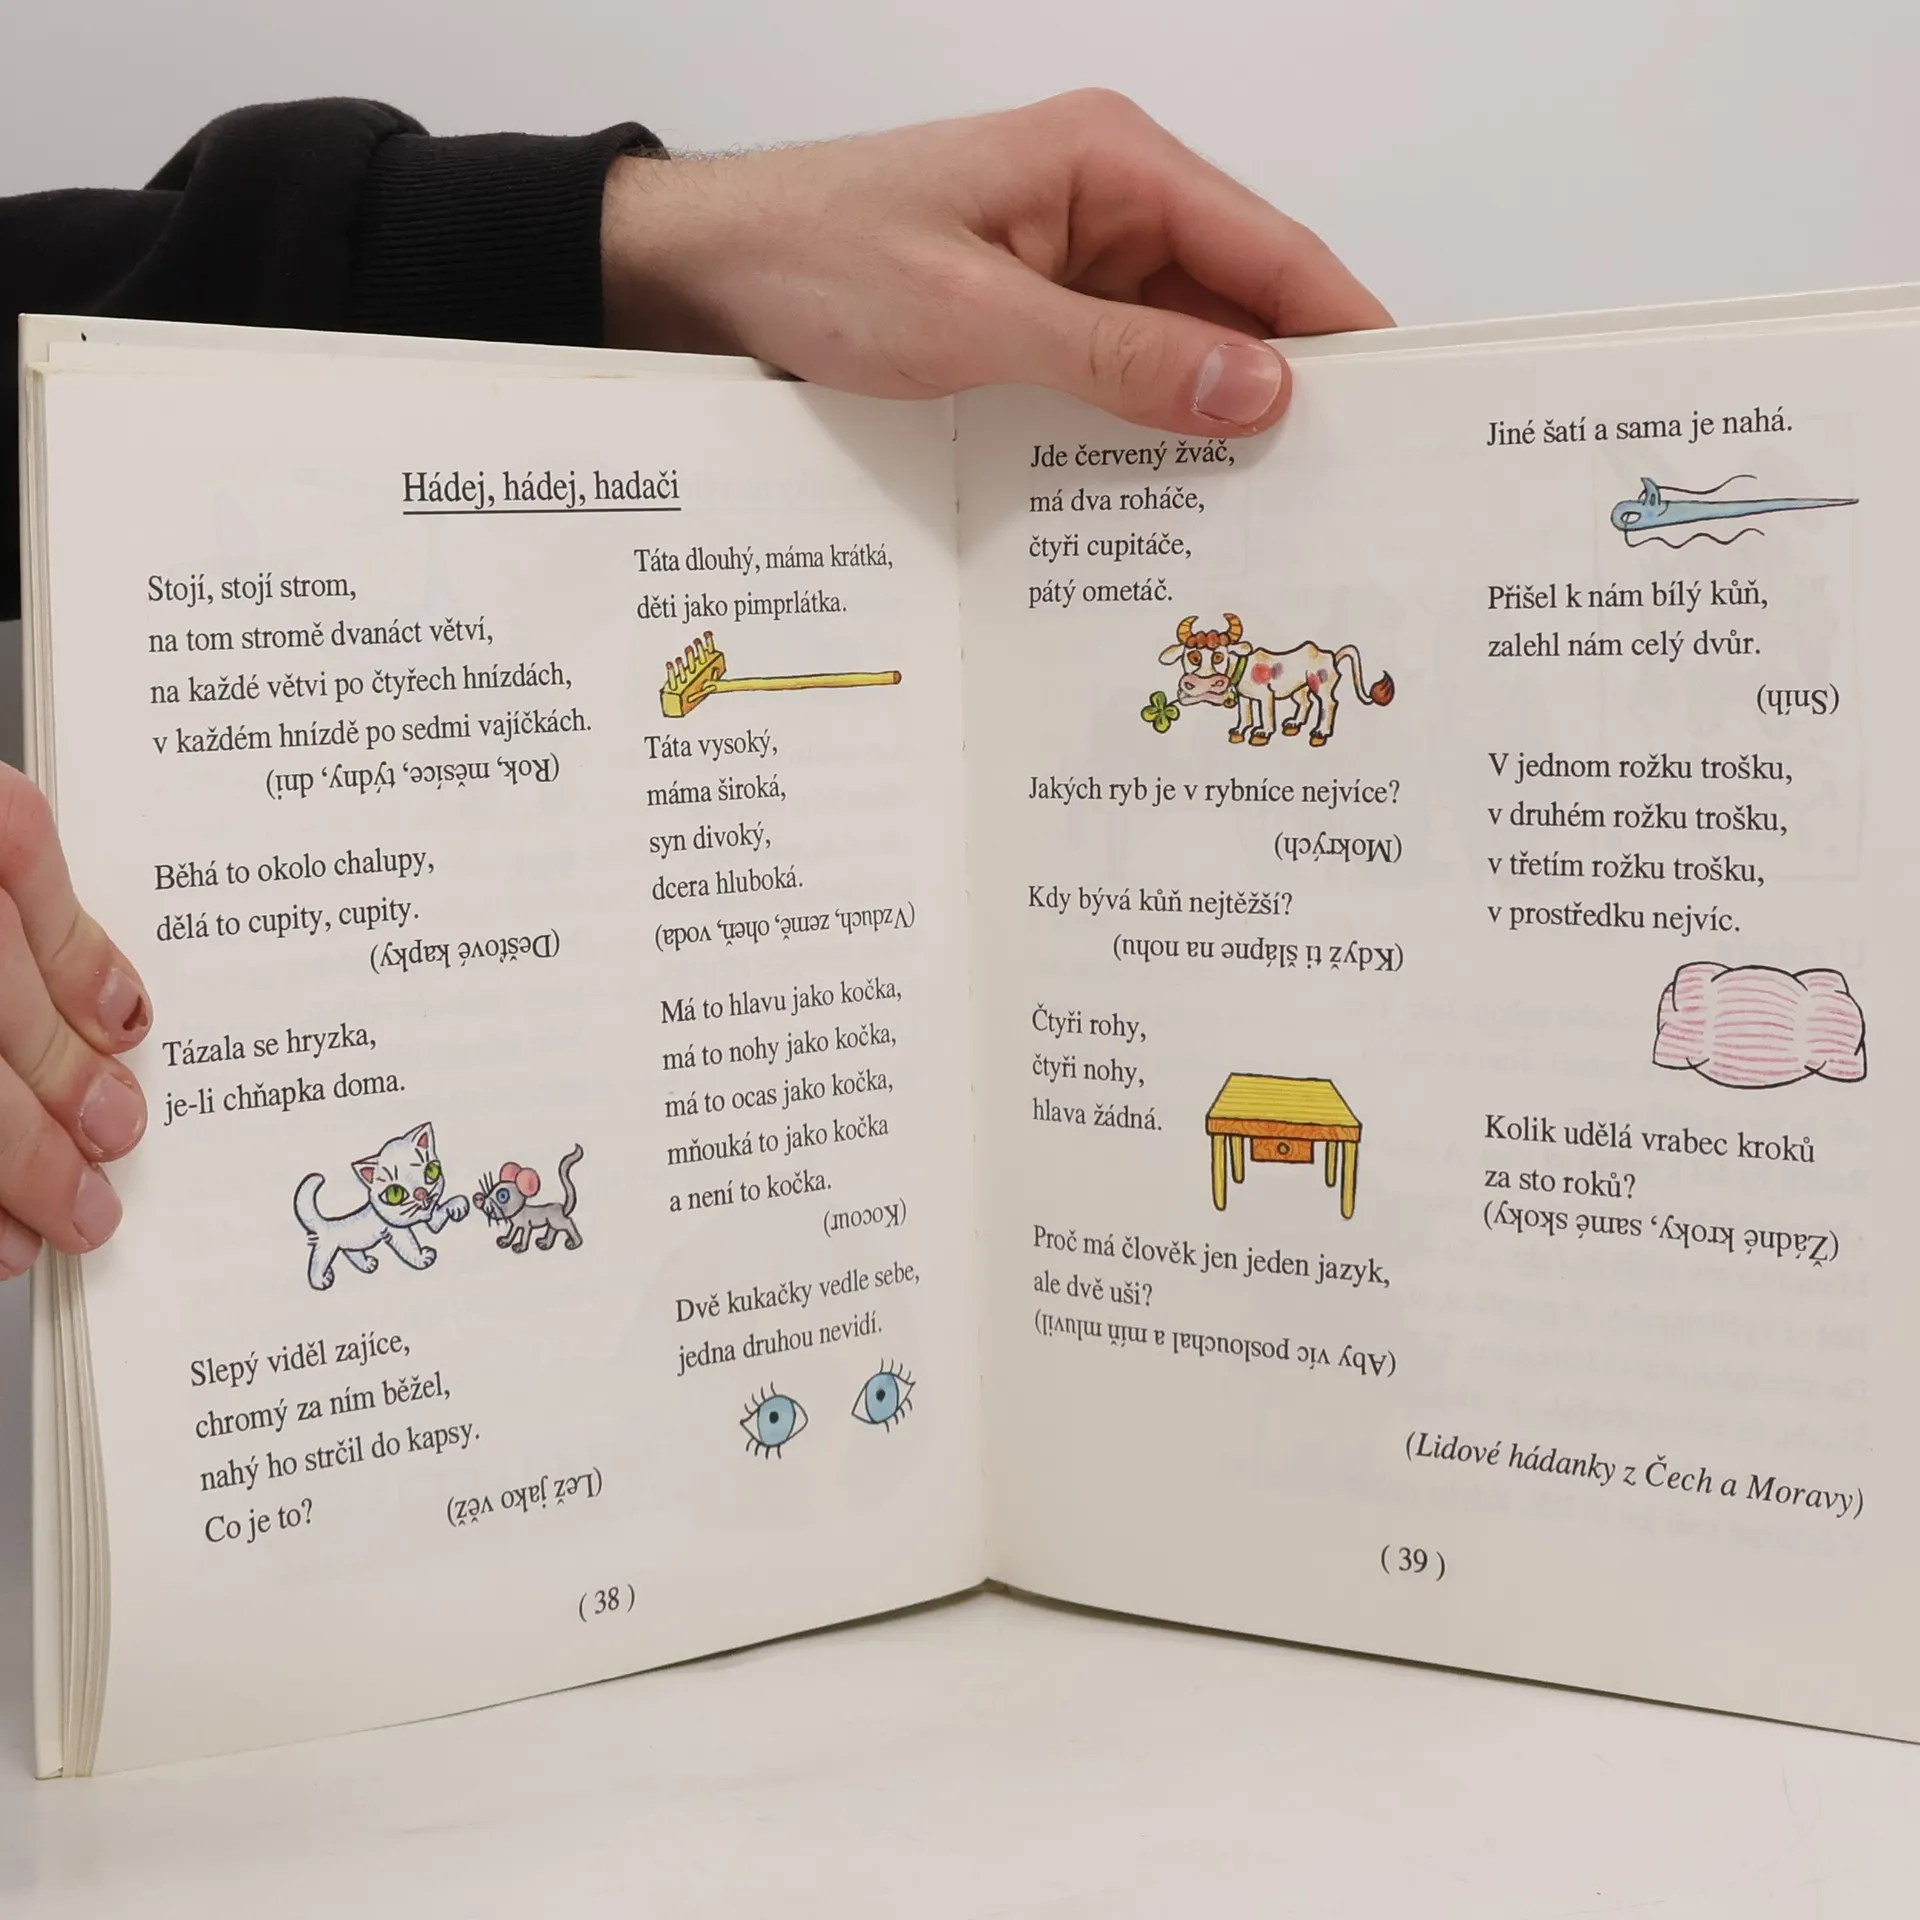 Hádej, hádej, hadači
Stojí, stojí strom,
na tom stromě dvanáct větví,
na každé větvi po čtyřech hnízdách,
v každém hnízdě po sedmi vajíčkách.
(Rok, měsíce, týdny, dni)
Běhá to okolo chalupy,
dělá to cupity, cupity.
(Dešťové kapky)
Tázala se hryzka,
je-li chňapka doma.
Slepý viděl zajíce,
chromý za ním běžel,
nahý ho strčil do kapsy.
Co je to?
(Lež jako věž)
Táta dlouhý, máma krátká,
děti jako pimprlátka.
Táta vysoký,
máma široká,
syn divoký,
dcera hluboká.
(Vzduch, země, oheň, voda)
Má to hlavu jako kočka,
má to nohy jako kočka,
má to ocas jako kočka,
mňouká to jako kočka
a není to kočka.
(Kocour)
Dvě kukačky vedle sebe,
jedna druhou nevidí.
(38)
Jde červený žváč,
má dva roháče,
čtyři cupitáče,
pátý ometáč.
Jakých ryb je v rybníce nejvíce?
(Mokrých)
Kdy bývá kůň nejtěžší?
(Když ti šlápne na nohu)
Čtyři rohy,
čtyři nohy,
hlava žádná.
Proč má člověk jen jeden jazyk,
ale dvě uši?
(Aby víc poslouchal a míň mluvil)
Jiné šatí a sama je nahá.
Přišel k nám bílý kůň,
zalehl nám celý dvůr.
(Sníh)
V jednom rožku trošku,
v druhém rožku trošku,
v třetím rožku trošku,
v prostředku nejvíc.
Kolik udělá vrabec kroků
za sto roků?
(Žádné kroky, samé skoky)
(Lidové hádanky z Čech a Moravy)
(39)